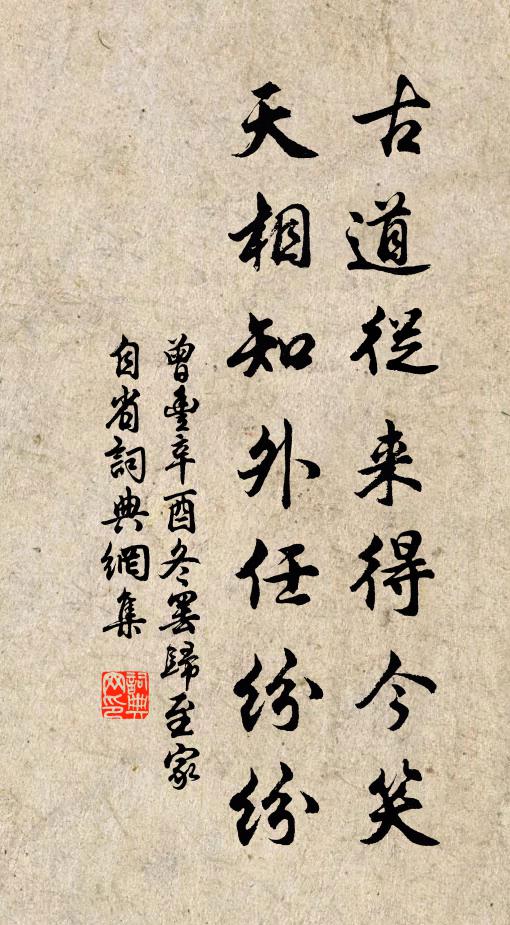 古道從来得今笑
天相知外任纷纷
曾豐辛酉冬罢歸至家
自省詞典網集
詞典网印